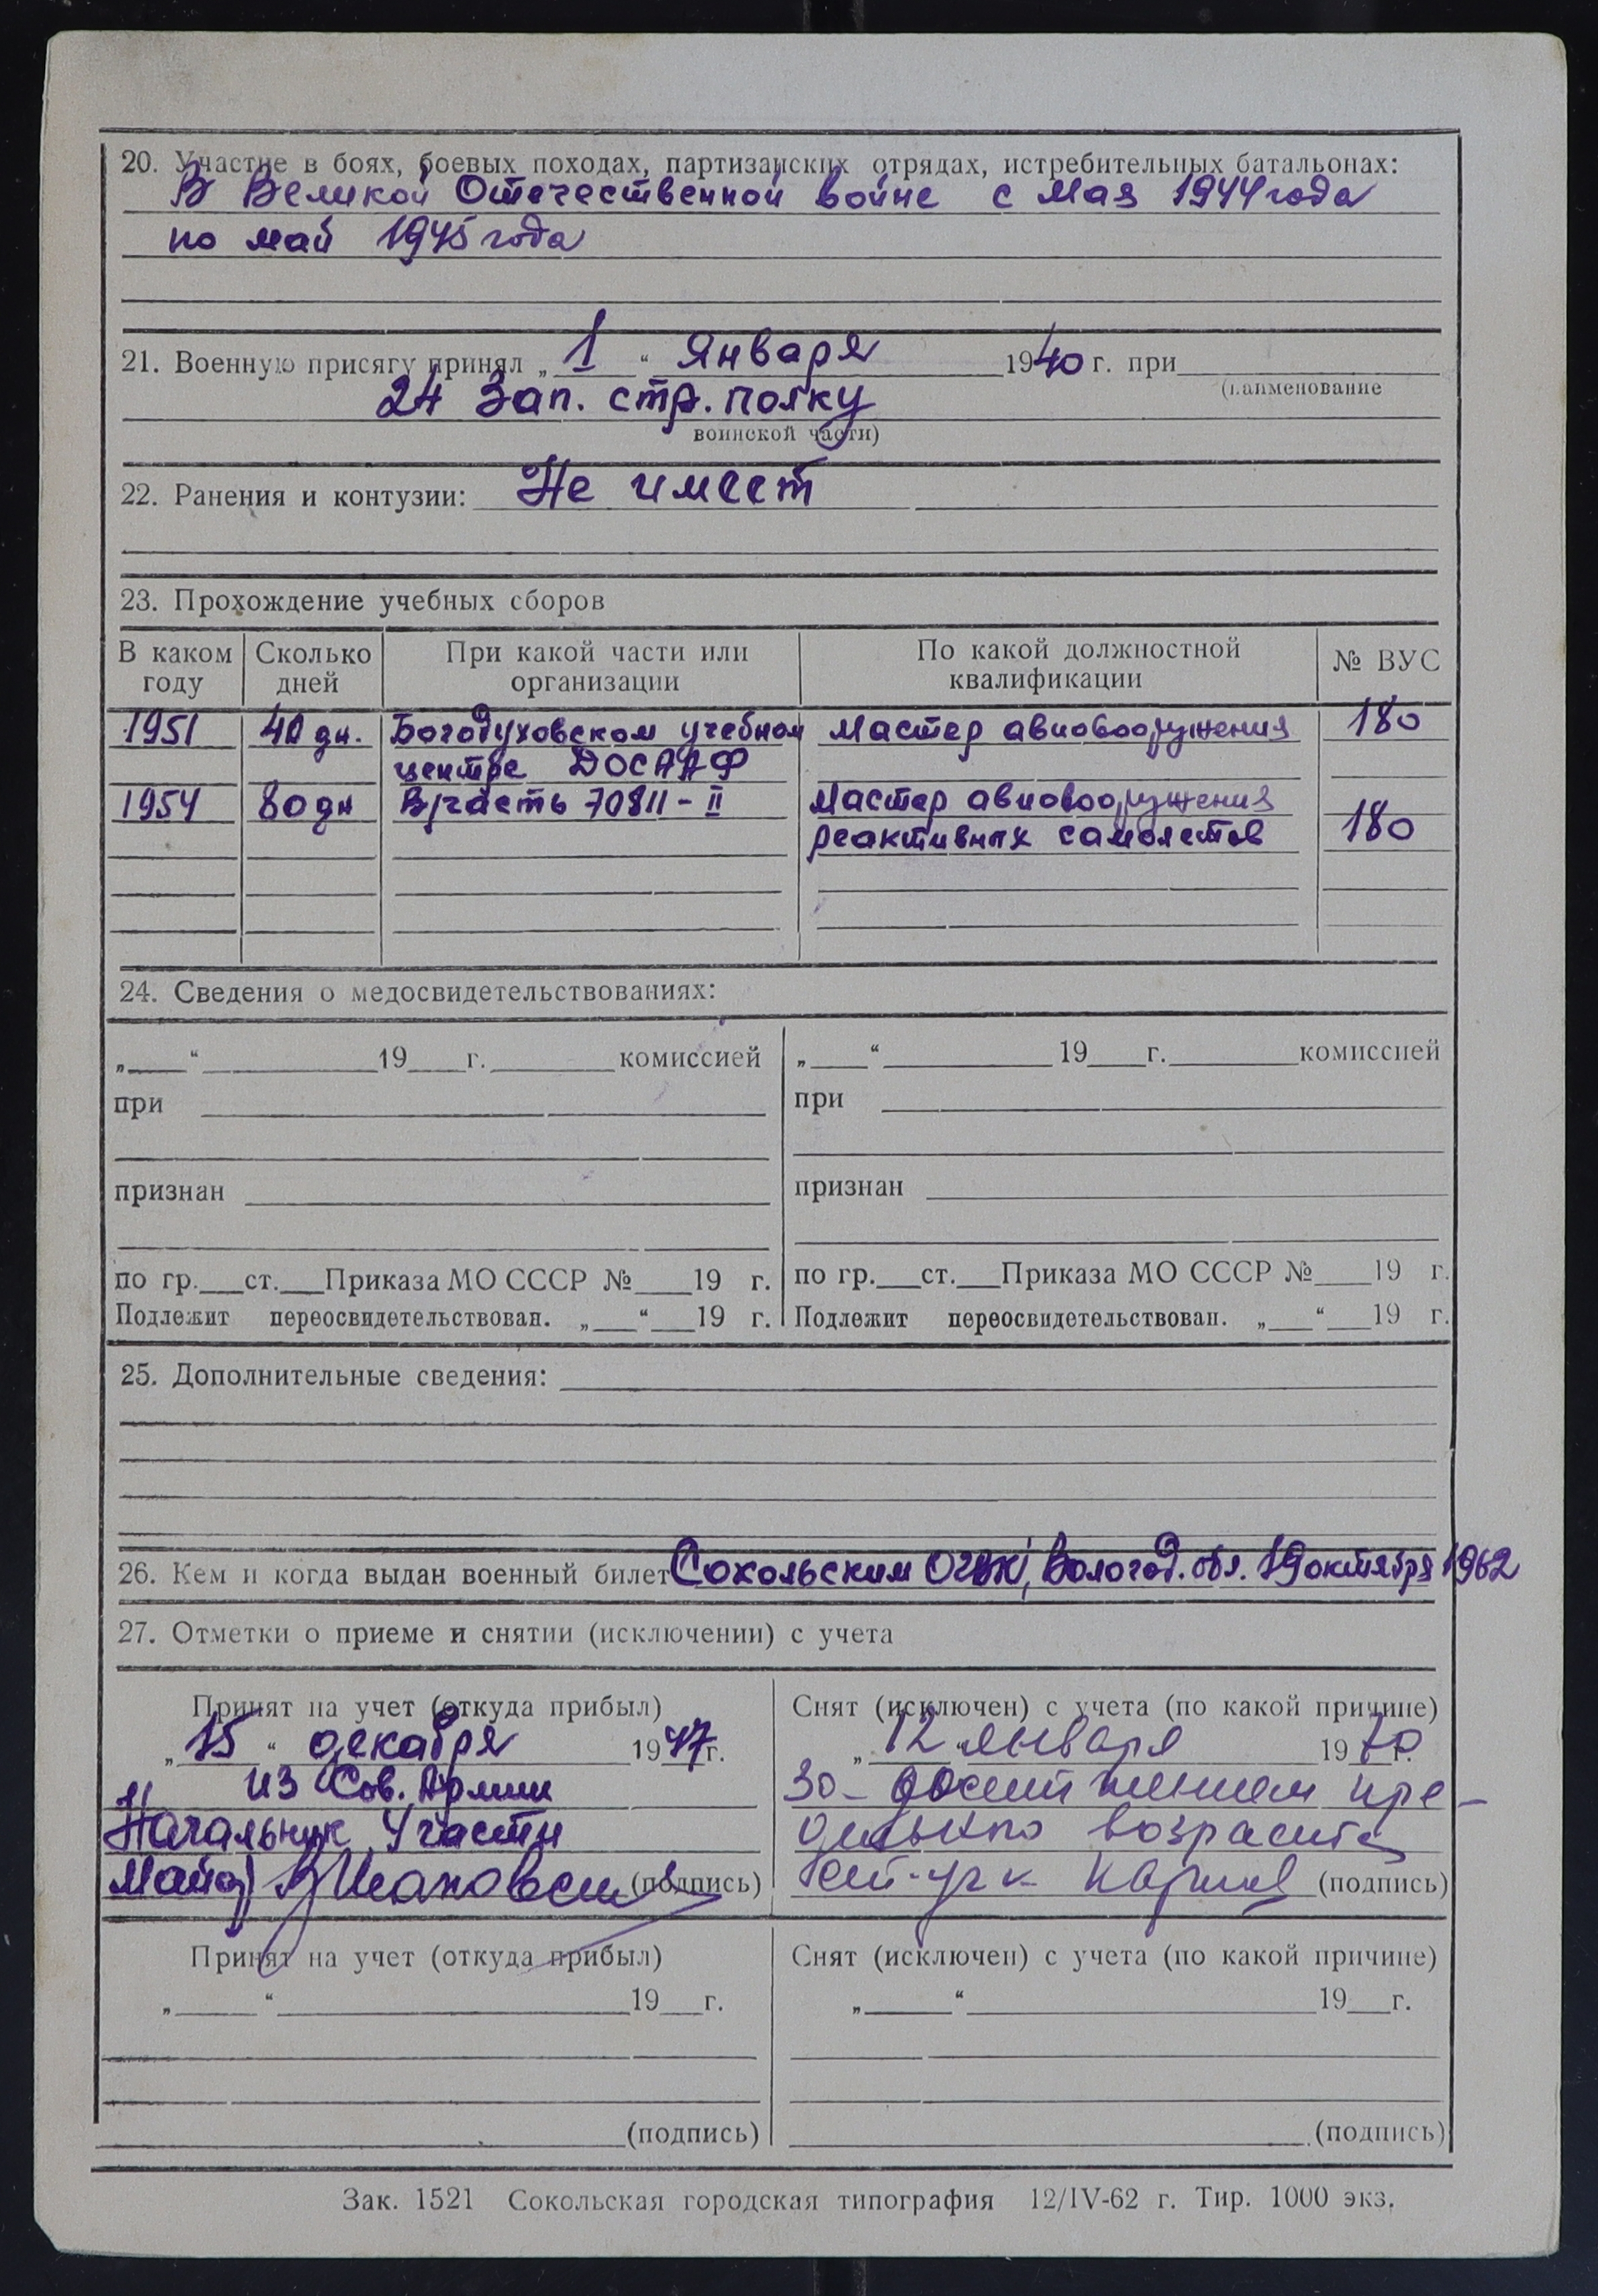 20. Участие в боях, боевых походах, партизанских отрядах, истребительных батальонах:
В Великой Отечественной войне с мая 1944 года
по май 1945 года
21. Военную присягу принял „ 1 “ Января 1940 г. при
(наименование
24 Зап. стр. полку
воинской части)
22. Ранения и контузии: Не имеет
23. Прохождение учебных сборов
В каком году Сколько дней При какой части или организации По какой должностной квалификации № ВУС
1951 40 дн. Богодуховском учебном Мастер авиовооружения 180
центре ДОСААФ
1954 80 дн В/часть 70811-II Мастер авиовооружения
реактивных самолетов 180
24. Сведения о медосвидетельствованиях:
„ “ 19 г. комиссией „ “ 19 г. комиссией
при при
признан признан
по гр. ст. Приказа МО СССР № 19 г. по гр. ст. Приказа МО СССР № 19 г.
Подлежит переосвидетельствован. „ “ 19 г. Подлежит переосвидетельствован. „ “ 19 г.
25. Дополнительные сведения:
26. Кем и когда выдан военный билет Сокольским Вологод. обл. 19 октября 1962
27. Отметки о приеме и снятии (исключении) с учета
Принят на учет (откуда прибыл) Снят (исключен) с учета (по какой причине)
„ 15 “ декабря 1947 г. „ 12 “ января 1970 г.
из Сов. Армии за достижением пре-
Начальник Части возраста
Майор (подпись) (подпись)
Принят на учет (откуда прибыл) Снят (исключен) с учета (по какой причине)
„ “ 19 г. „ “ 19 г.
(подпись) (подпись)
Зак. 1521 Сокольская городская типография 12/IV-62 г. Тир. 1000 экз.